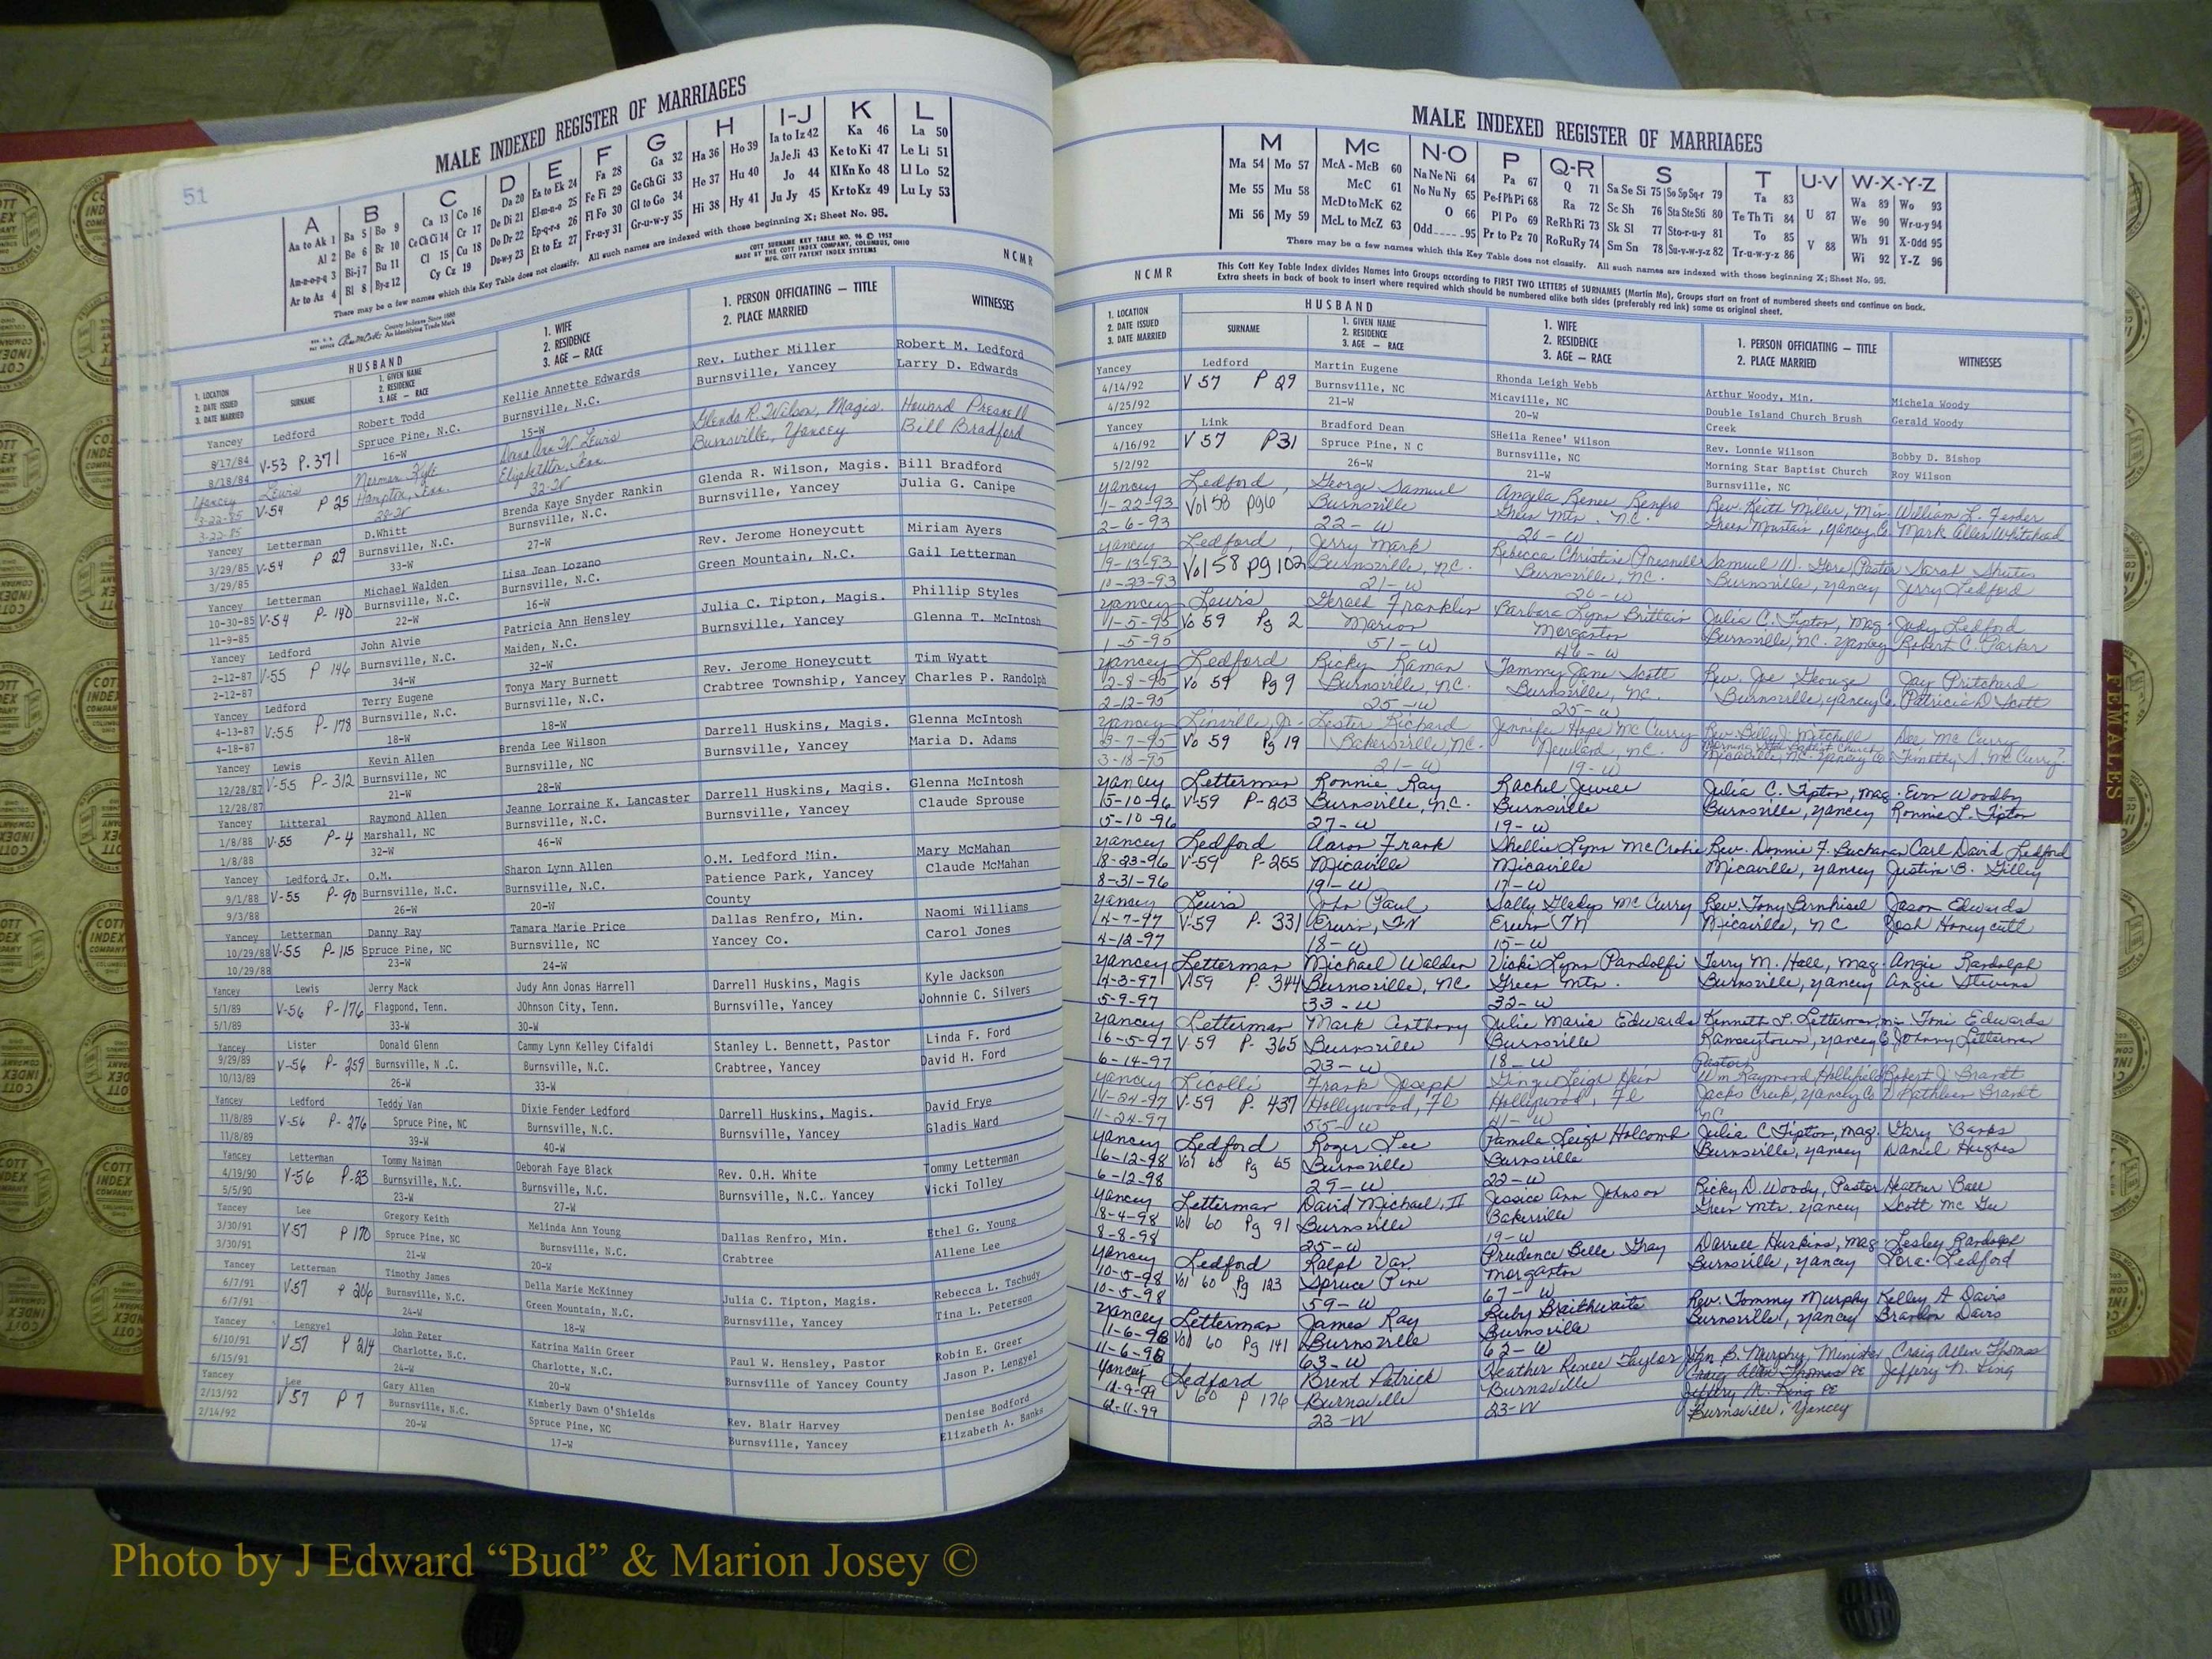 51
MALE INDEXED REGISTER OF MARRIAGES
A B C D E F G H I-J K L
Aa to Ak 1 Ba 5 Bo 9 Ca 13 Co 16 Da 20 Ea to Ek 24 Fa 28 Ga 32 Ha 36 Ho 39 Ia to Iz 42 Ka 46 La 50
Al 2 Be 6 Br 10 Ce Ch Ci 14 Cr 17 De Di 21 El-m-n-o 25 Fe Fi 29 Ge Gh Gi 33 He 37 Hu 40 Ja Je Ji 43 Ke to Ki 47 Le Li 51
Am-n-o-p-q 3 Bi-j 7 Bu 11 Cl 15 Cu 18 Do Dr 22 Ep-q-r-s 26 Fl Fo 30 Gl to Go 34 Hi 38 Hy 41 Jo 44 Kl Kn Ko 48 Ll Lo 52
Ar to Az 4 Bl 8 By-z 12 Cy Cz 19 Du-w-y 23 Et to Ez 27 Fr-u-y 31 Gr-u-w-y 35 Ju Jy 45 Kr to Kz 49 Lu Ly 53
There may be a few names which this Key Table does not classify. All such names are indexed with those beginning X; Sheet No. 95.
County Indexes Since 1888
An Identifying Trade Mark
COTT SURNAME KEY TABLE NO. 96 © 1952
MADE BY THE COTT INDEX COMPANY, COLUMBUS, OHIO
MFG. COTT PATENT INDEX SYSTEMS
NCMR
1. LOCATION
2. DATE ISSUED
3. DATE MARRIED
HUSBAND
SURNAME
1. GIVEN NAME
2. RESIDENCE
3. AGE — RACE
1. WIFE
2. RESIDENCE
3. AGE — RACE
1. PERSON OFFICIATING — TITLE
2. PLACE MARRIED
WITNESSES
Yancey Ledford Robert Todd Kellie Annette Edwards Rev. Luther Miller Robert M. Ledford
8/17/84 V-53 P.371 Spruce Pine, N.C. Burnsville, N.C. Burnsville, Yancey Larry D. Edwards
8/18/84 16-W 15-W
Yancey Lewis Norman Kyle Dana Ann W. Lewis Glenda R. Wilson, Magis. Howard Presnell
3-22-85 V-54 P 25 Hampton, Tenn. Elizabethton, Tenn. Burnsville, Yancey Bill Bradford
3-22-85 28-W 32-W
Yancey Letterman D.Whitt Brenda Kaye Snyder Rankin Glenda R. Wilson, Magis. Bill Bradford
3/29/85 V-54 P 29 Burnsville, N.C. Burnsville, N.C. Burnsville, Yancey Julia G. Canipe
3/29/85 33-W 27-W
Yancey Letterman Michael Walden Lisa Jean Lozano Rev. Jerome Honeycutt Miriam Ayers
10-30-85 V-54 P-140 Burnsville, N.C. Burnsville, N.C. Green Mountain, N.C. Gail Letterman
11-9-85 22-W 16-W
Yancey Ledford John Alvie Patricia Ann Hensley Julia C. Tipton, Magis. Phillip Styles
2-12-87 V-55 P 146 Burnsville, N.C. Maiden, N.C. Burnsville, Yancey Glenna T. McIntosh
2-12-87 34-W 32-W
Yancey Ledford Terry Eugene Tonya Mary Burnett Rev. Jerome Honeycutt Tim Wyatt
4-13-87 V-55 P-178 Burnsville, N.C. Burnsville, N.C. Crabtree Township, Yancey Charles P. Randolph
4-18-87 18-W 18-W
Yancey Lewis Kevin Allen Brenda Lee Wilson Darrell Huskins, Magis. Glenna McIntosh
12/28/87 V-55 P-312 Burnsville, NC Burnsville, NC Burnsville, Yancey Maria D. Adams
12/28/87 21-W 28-W
Yancey Litteral Raymond Allen Jeanne Lorraine K. Lancaster Darrell Huskins, Magis. Glenna McIntosh
1/8/88 V-55 P-4 Marshall, NC Burnsville, N.C. Burnsville, Yancey Claude Sprouse
1/8/88 32-W 46-W
Yancey Ledford Jr. O.M. Sharon Lynn Allen O.M. Ledford Min. Mary McMahan
9/1/88 V-55 P-90 Burnsville, N.C. Burnsville, N.C. Patience Park, Yancey Claude McMahan
9/3/88 26-W 20-W County
Yancey Letterman Danny Ray Tamara Marie Price Dallas Renfro, Min. Naomi Williams
10/29/88 V-55 P-115 Spruce Pine, NC Burnsville, NC Yancey Co. Carol Jones
10/29/88 23-W 24-W
Yancey Lewis Jerry Mack Judy Ann Jonas Harrell Darrell Huskins, Magis Kyle Jackson
5/1/89 V-56 P-176 Flagpond, Tenn. JOhnson City, Tenn. Burnsville, Yancey Johnnie C. Silvers
5/1/89 33-W 30-W
Yancey Lister Donald Glenn Cammy Lynn Kelley Cifaldi Stanley L. Bennett, Pastor Linda F. Ford
9/29/89 V-56 P-259 Burnsville, N.C. Burnsville, N.C. Crabtree, Yancey David H. Ford
10/13/89 26-W 33-W
Yancey Ledford Teddy Van Dixie Fender Ledford Darrell Huskins, Magis. David Frye
11/8/89 V-56 P-276 Spruce Pine, NC Burnsville, N.C. Burnsville, Yancey Gladis Ward
11/8/89 39-W 40-W
Yancey Letterman Tommy Naiman Deborah Faye Black Rev. O.H. White Tommy Letterman
4/19/90 V-56 P-23 Burnsville, N.C. Burnsville, N.C. Burnsville, N.C. Yancey Vicki Tolley
5/5/90 23-W 27-W
Yancey Lee Gregory Keith Melinda Ann Young Dallas Renfro, Min. Ethel G. Young
3/30/91 V57 P 170 Spruce Pine, NC Burnsville, N.C. Crabtree Allene Lee
3/30/91 21-W 20-W
Yancey Letterman Timothy James Della Marie McKinney Julia C. Tipton, Magis. Rebecca L. Tschudy
6/7/91 V57 P 206 Burnsville, N.C. Green Mountain, N.C. Burnsville, Yancey Tina L. Peterson
6/7/91 24-W 18-W
Yancey Lengyel John Peter Katrina Malin Greer Paul W. Hensley, Pastor Robin E. Greer
6/10/91 V57 P 214 Charlotte, N.C. Charlotte, N.C. Burnsville of Yancey County Jason P. Lengyel
6/15/91 24-W 20-W
Yancey Lee Gary Allen Kimberly Dawn O'Shields Rev. Blair Harvey Denise Bodford
2/13/92 V57 P 7 Burnsville, N.C. Spruce Pine, NC Burnsville, Yancey Elizabeth A. Banks
2/14/92 20-W 17-W
MALE INDEXED REGISTER OF MARRIAGES
M Mc N-O P Q-R S T U-V W-X-Y-Z
Ma 54 Mo 57 McA - McB 60 Na Ne Ni 64 Pa 67 Q 71 Sa Se Si 75 So Sp Sq-r 79 Ta 83 U 87 Wa 89 Wo 93
Me 55 Mu 58 McC 61 No Nu Ny 65 Pe-f Ph Pi 68 Ra 72 Sc Sh 76 Sta Ste Sti 80 Te Th Ti 84 V 88 We 90 Wr-u-y 94
Mi 56 My 59 McD to McK 62 O 66 Pl Po 69 Re Rh Ri 73 Sk Sl 77 Sto-r-u-y 81 To 85 Wh 91 X-Odd 95
McL to McZ 63 Odd 95 Pr to Pz 70 Ro Ru Ry 74 Sm Sn 78 Su-v-w-y-z 82 Tr-u-w-y-z 86 Wi 92 Y-Z 96
There may be a few names which this Key Table does not classify. All such names are indexed with those beginning X; Sheet No. 95.
NCMR
This Cott Key Table Index divides Names into Groups according to FIRST TWO LETTERS of SURNAMES (Martin Ma), Groups start on front of numbered sheets and continue on back.
Extra sheets in back of book to insert where required which should be numbered alike both sides (preferably red ink) same as original sheet.
1. LOCATION
2. DATE ISSUED
3. DATE MARRIED
HUSBAND
SURNAME
1. GIVEN NAME
2. RESIDENCE
3. AGE — RACE
1. WIFE
2. RESIDENCE
3. AGE — RACE
1. PERSON OFFICIATING — TITLE
2. PLACE MARRIED
WITNESSES
Yancey Ledford Martin Eugene Rhonda Leigh Webb Arthur Woody, Min. Michela Woody
4/14/92 V 57 P 29 Burnsville, NC Micaville, NC Double Island Church Brush Gerald Woody
4/25/92 21-W 20-W Creek
Yancey Link Bradford Dean SHeila Renee' Wilson Rev. Lonnie Wilson Bobby D. Bishop
4/16/92 V 57 P31 Spruce Pine, N C Burnsville, NC Morning Star Baptist Church Roy Wilson
5/2/92 26-W 21-W Burnsville, NC
Yancey Ledford, George Samuel Angela Renee Renfro Rev. Keith Miller, Min. William L. Fender
1-22-93 Vol 58 pg 6 Burnsville Green Mtn. N.C. Green Mountain, Yancey Co Mark Allen Whitehead
2-6-93 22-W 20-W
Yancey Ledford, Jerry Mark Rebecca Christine Presnell Samuel W. Gore, Pastor Sarah Shutes
9-13-93 Vol 58 pg 102 Burnsville, NC. Burnsville, NC. Burnsville, Yancey Jerry Ledford
10-23-93 21-W 20-W
Yancey Lewis Gerald Franklin Barbara Lynn Brittain Julia C. Tipton, Mag. Judy Ledford
1-5-95 Vo 59 Pg 2 Marion Morganton Burnsville, NC. Yancey Robert C. Parker
1-5-95 51-W 46-W
Yancey Ledford Ricky Raman Tammy Jane Scott Rev. Joe George Jay Pritchard
2-8-95 Vo 59 Pg 9 Burnsville, NC. Burnsville, NC. Burnsville, Yancey Co. Patricia D. Scott
2-12-95 25-W 25-W
Yancey Linville, Jr. Lester Richard Jennifer Hope McCurry Rev. Billy J. Mitchell Dee McCurry
3-7-95 Vo 59 Pg 19 Bakersville, NC. Newland, NC. Morning Star Baptist Church Timothy S. McCurry
3-18-95 21-W 19-W Micaville, NC. Yancey Co
Yancey Letterman Ronnie Ray Rachel Juvee Julia C. Tipton, Mag. Evon Woodby
5-10-96 V-59 P-203 Burnsville, NC. Burnsville Burnsville, Yancey Ronnie L. Tipton
5-10-96 27-W 19-W
Yancey Ledford Aaron Frank Shellie Lynn McCrakie Rev. Donnie F. Buchanan Carl David Ledford
8-23-96 V-59 P-255 Micaville Micaville Micaville, Yancey Justin B. Gilley
8-31-96 19-W 17-W
Yancey Lewis John Paul Sally Gladys McCurry Rev. Tony Barnhisel Jason Edwards
4-7-97 V-59 P. 331 Erwin, TN Erwin TN Micaville, NC Josh Honeycutt
4-12-97 18-W 15-W
Yancey Letterman Michael Walden Vicki Lynn Pandolfi Terry M. Hall, Mag. Angie Randolph
4-3-97 V59 P. 344 Burnsville, NC Green Mtn. Burnsville, Yancey Angie Stevens
5-9-97 33-W 32-W
Yancey Letterman Mark Anthony Julie Marie Edwards Kenneth L. Letterman, Min Toni Edwards
6-5-97 V-59 P. 365 Burnsville Burnsville Ramseytown, Yancey Co Johnny Letterman
6-14-97 23-W 18-W Pastor
Yancey Licolli Frank Joseph Wm Raymond Hollifield Robert J. Brandt
11-24-97 V-59 P. 437 Hollywood, Fl Hollywood, Fl Jacks Creek, Yancey Co Kathleen Brandt
11-24-97 55-W 41-W NC
Yancey Ledford Roger Lee Pamela Leigh Holcomb Julia C Tipton, Mag. Gary Banks
6-12-98 Vol 60 Pg 65 Burnsville Burnsville Burnsville, Yancey Daniel Hughes
6-12-98 29-W 22-W
Yancey Letterman David Michael, II Jessica Ann Johnson Ricky D. Woody, Pastor Heather Ball
8-4-98 Vol 60 Pg 91 Burnsville Bakersville Green Mtn, Yancey Scott McGee
8-8-98 25-W 19-W
Yancey Ledford Ralph Van Prudence Belle Gray Darrell Huskins, Mag. Lesley Randolph
10-5-98 Vol 60 Pg 123 Spruce Pine Morganton Burnsville, Yancey Lora Ledford
10-5-98 59-W 67-W
Yancey Letterman James Ray Ruby Braithwaite Rev. Tommy Murphy Kelley A Davis
11-6-98 Vol 60 Pg 141 Burnsville Burnsville Burnsville, Yancey Brandon Davis
11-6-98 63-W 62-W
Yancey Ledford Brent Patrick Heather Renee Taylor John B. Murphy, Minister Craig Allen Thomas
V 60 P 176 Burnsville Burnsville Craig Allen Thomas PE Jeffery N. King
23-W 23-W Jeffery N. King PE
Burnsville, Yancey
FEMALES
Photo by J Edward “Bud” & Marion Josey ©